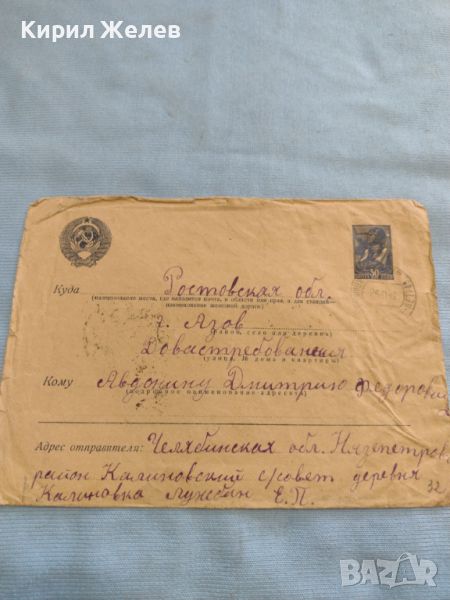 Кирил Желев
30
Куда Ростовская обл.
(наименование места, где находится почта, и области или края, а для станций—
наименование железной дороги)
г. Азов
(район, село или деревня)
Довастребования
(улица, № дома и квартиры)
Кому Авдонину Дмитрию Федорович
(подробное наименование адресата)
Адрес отправителя: Челябинская обл. Нязепетров.
район Калиновский с/совет деревня
Калиновка Е.П.
32
bazar